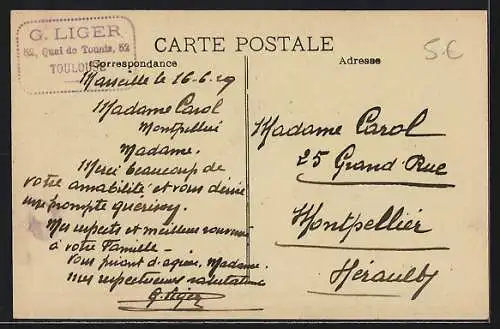 G. LIGER
52, Quai de Tounis, 52
TOULOUSE
CARTE POSTALE
Correspondance
Adresse
5€
Marseille le 16-6-29
Madame Carol
Montpellier
Madame.
Merci beaucoup de
votre amabilité et vous désire
une prompte guerison.
Mes respects et meilleur souvenir
à votre Famille —
Vous priant d'agreer, Madame.
mes respectueuses salutations
G. Liger
Madame Carol
25 Grand Rue
Montpellier
Hérault